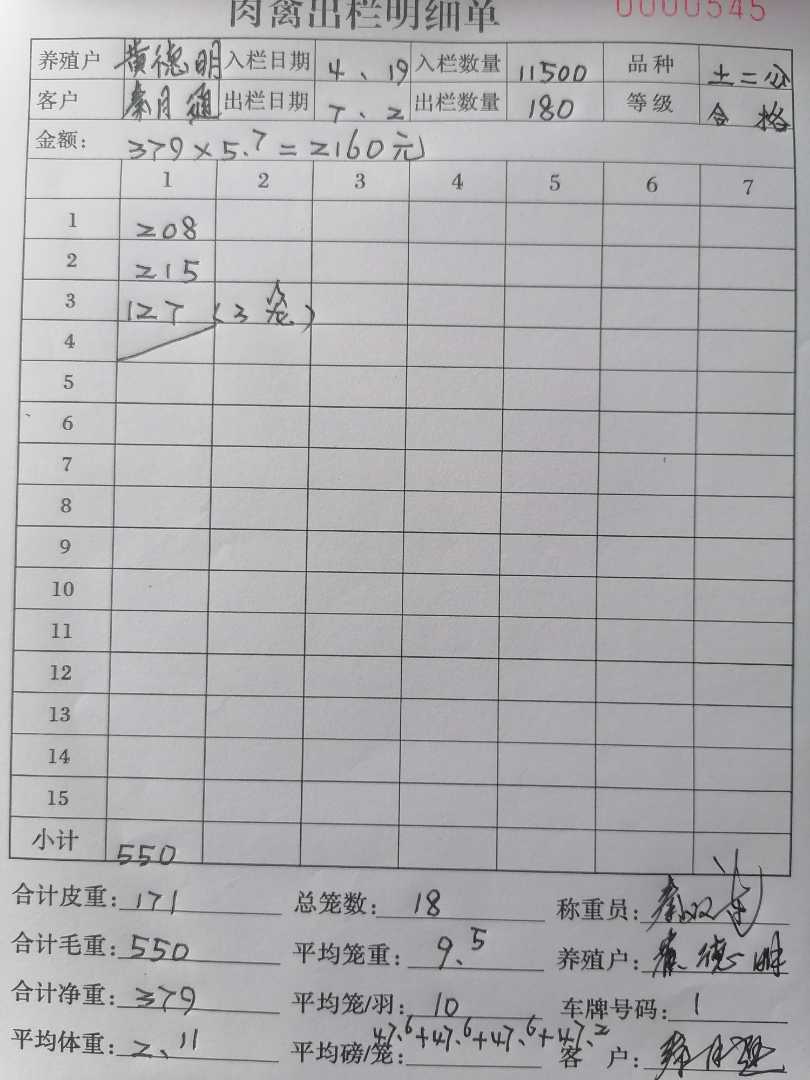 肉禽出栏明细单 0000545
养殖户 黄德明 入栏日期 4、19 入栏数量 11500 品种 土二公
客户 秦月 出栏日期 7、2 出栏数量 180 等级 合格
金额: 379×5.7=2160元
1 2 3 4 5 6 7
1 208
2 215
3 127 (3笼)
4
5
6
7
8
9
10
11
12
13
14
15
小计 550
合计皮重: 171 总笼数: 18 称重员: 秦
合计毛重: 550 平均笼重: 9.5 养殖户: 黄德明
合计净重: 379 平均笼/羽: 10 车牌号码: 1
平均体重: 2、11 平均磅/笼: 47.6+47.6+47.6+47.2 客户: